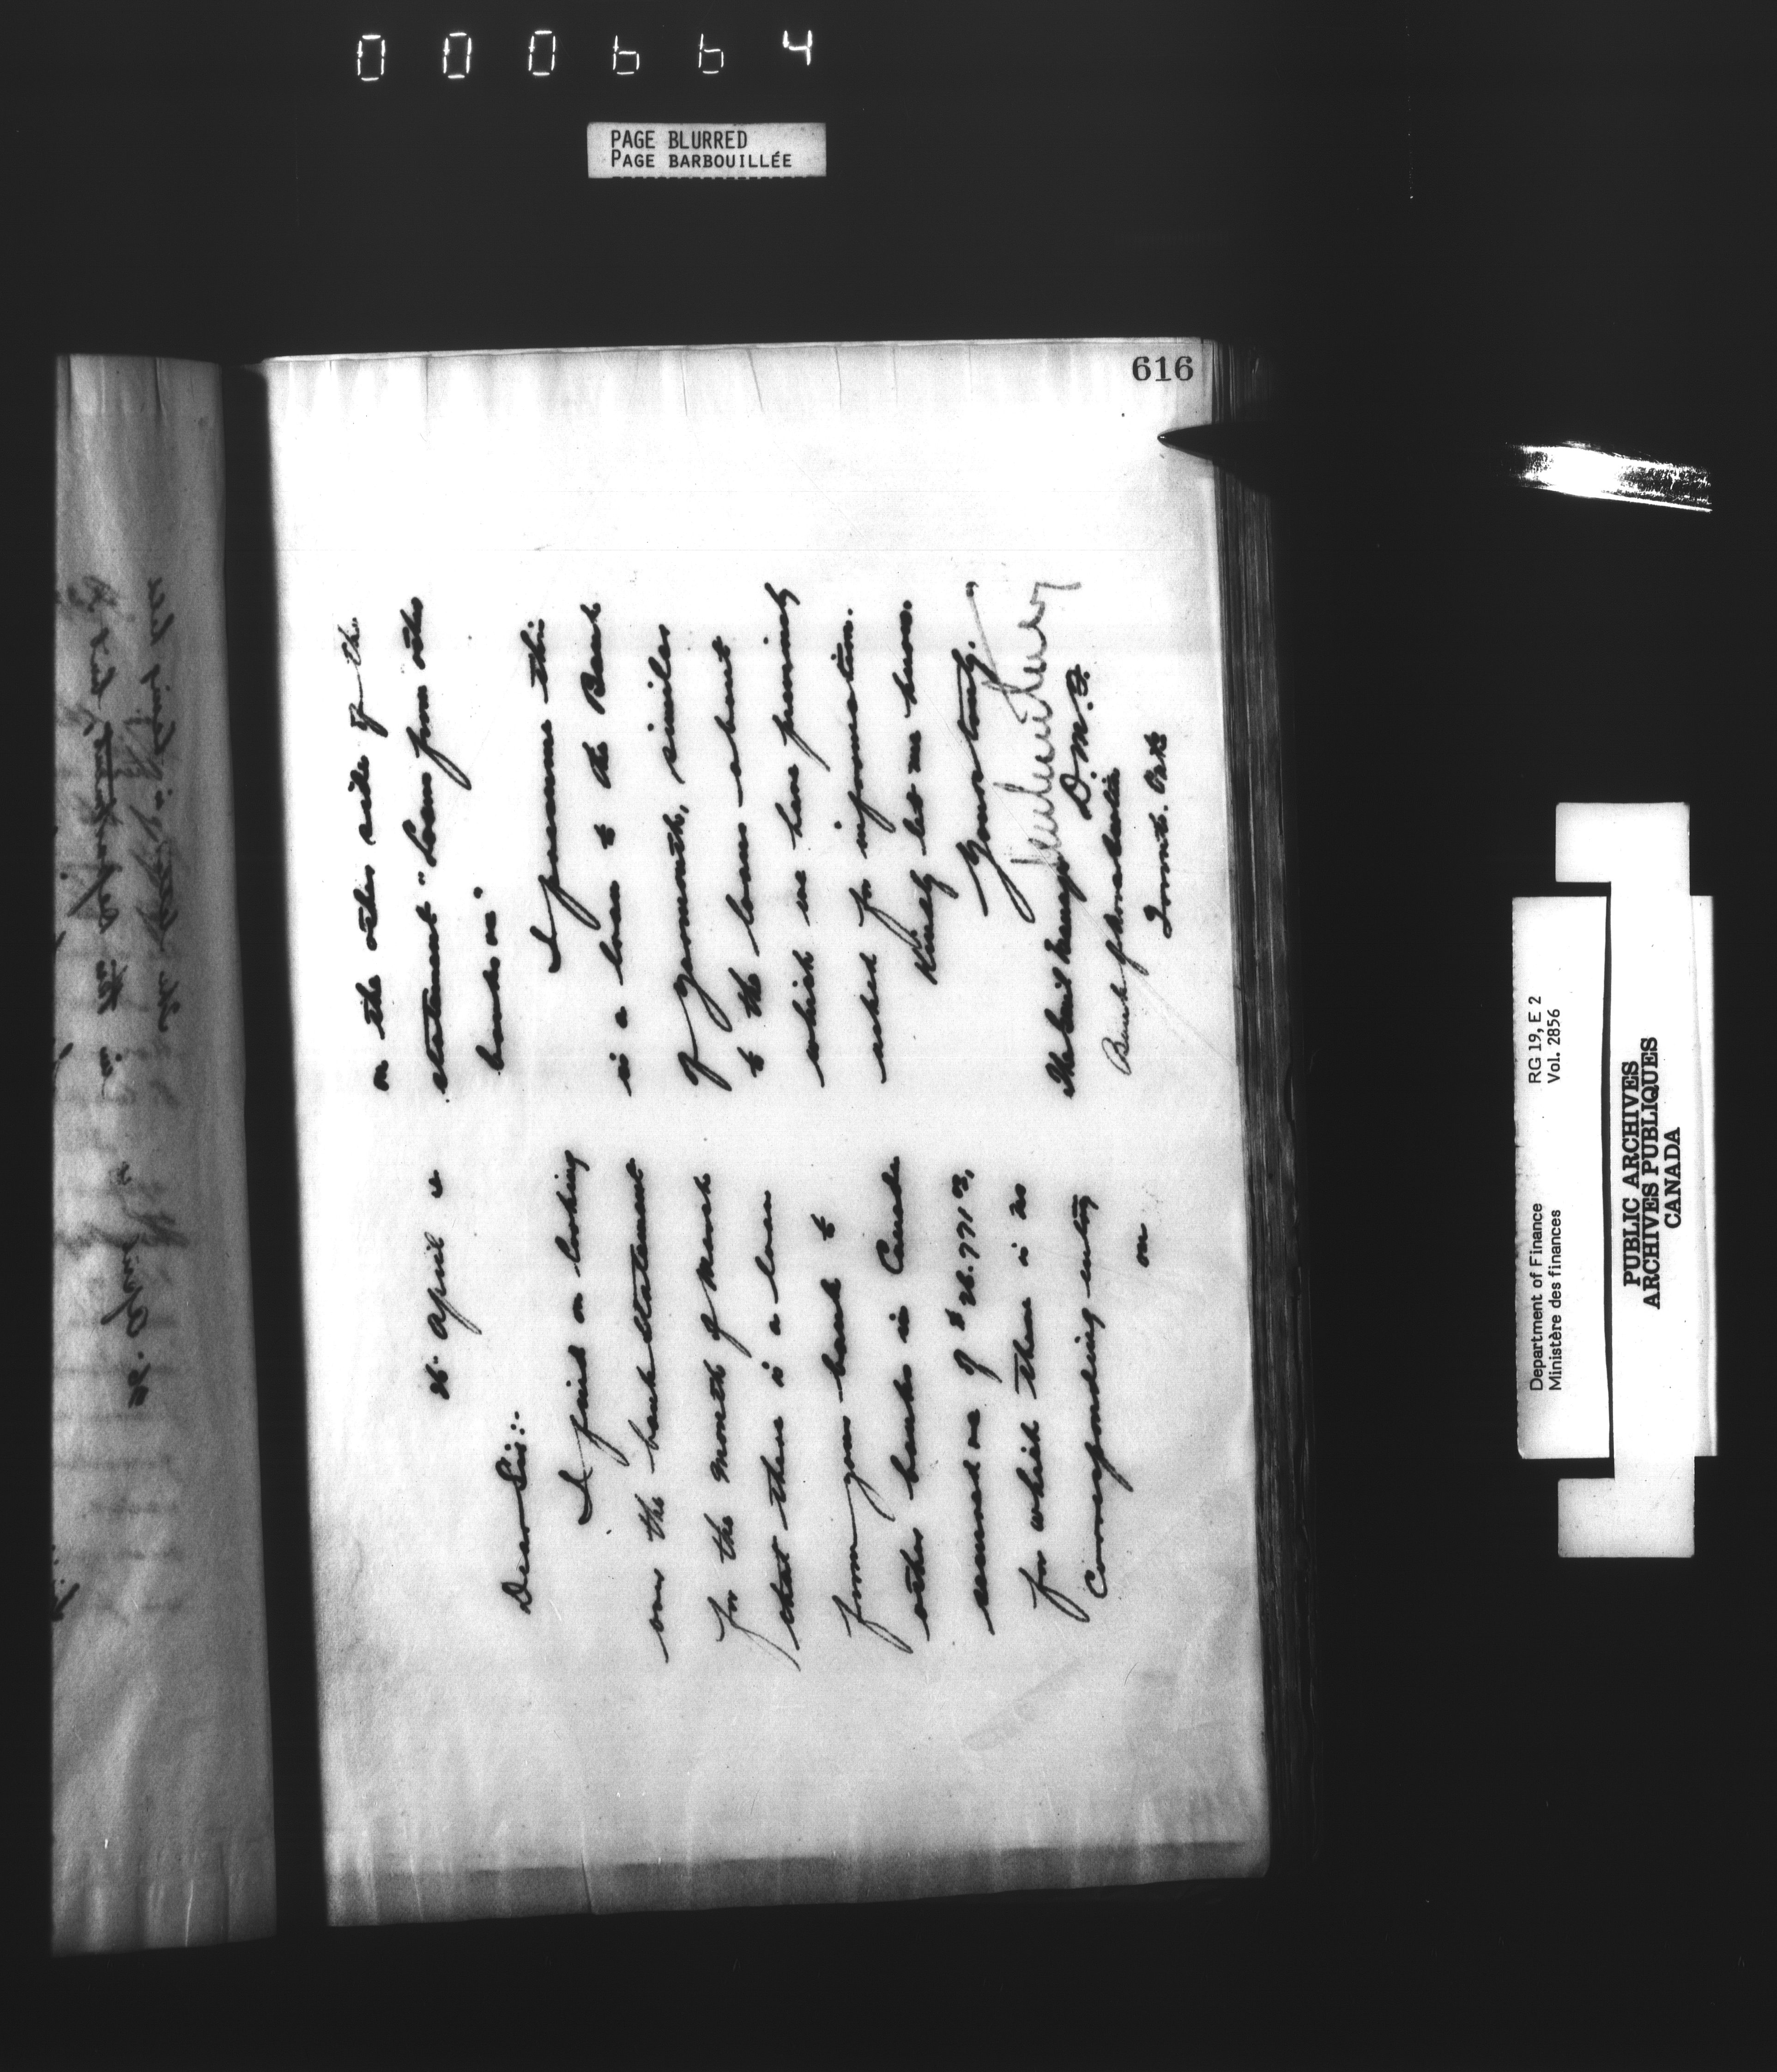 000664
PAGE BLURRED
PAGE BARBOUILLÉE
616
26. April
Dear Sir:
I find on looking
over the bank statement
for the month of March
that there is a loan
from your bank to
other banks in Canada
secured
of $26.771
for which there is no
Corresponding entry
on
on the other side of the
statement "Loans from other
banks in"
I presume this
is a loan to the Bank
of Yarmouth, similar
to the loans about
which we have previously
asked for information.
Kindly let me know.
Yours truly.
D.M.F.
The Genl Manager
Bank of
Toronto. Ont
Department of Finance RG 19, E 2
Ministère des finances Vol. 2856
PUBLIC ARCHIVES
ARCHIVES PUBLIQUES
CANADA